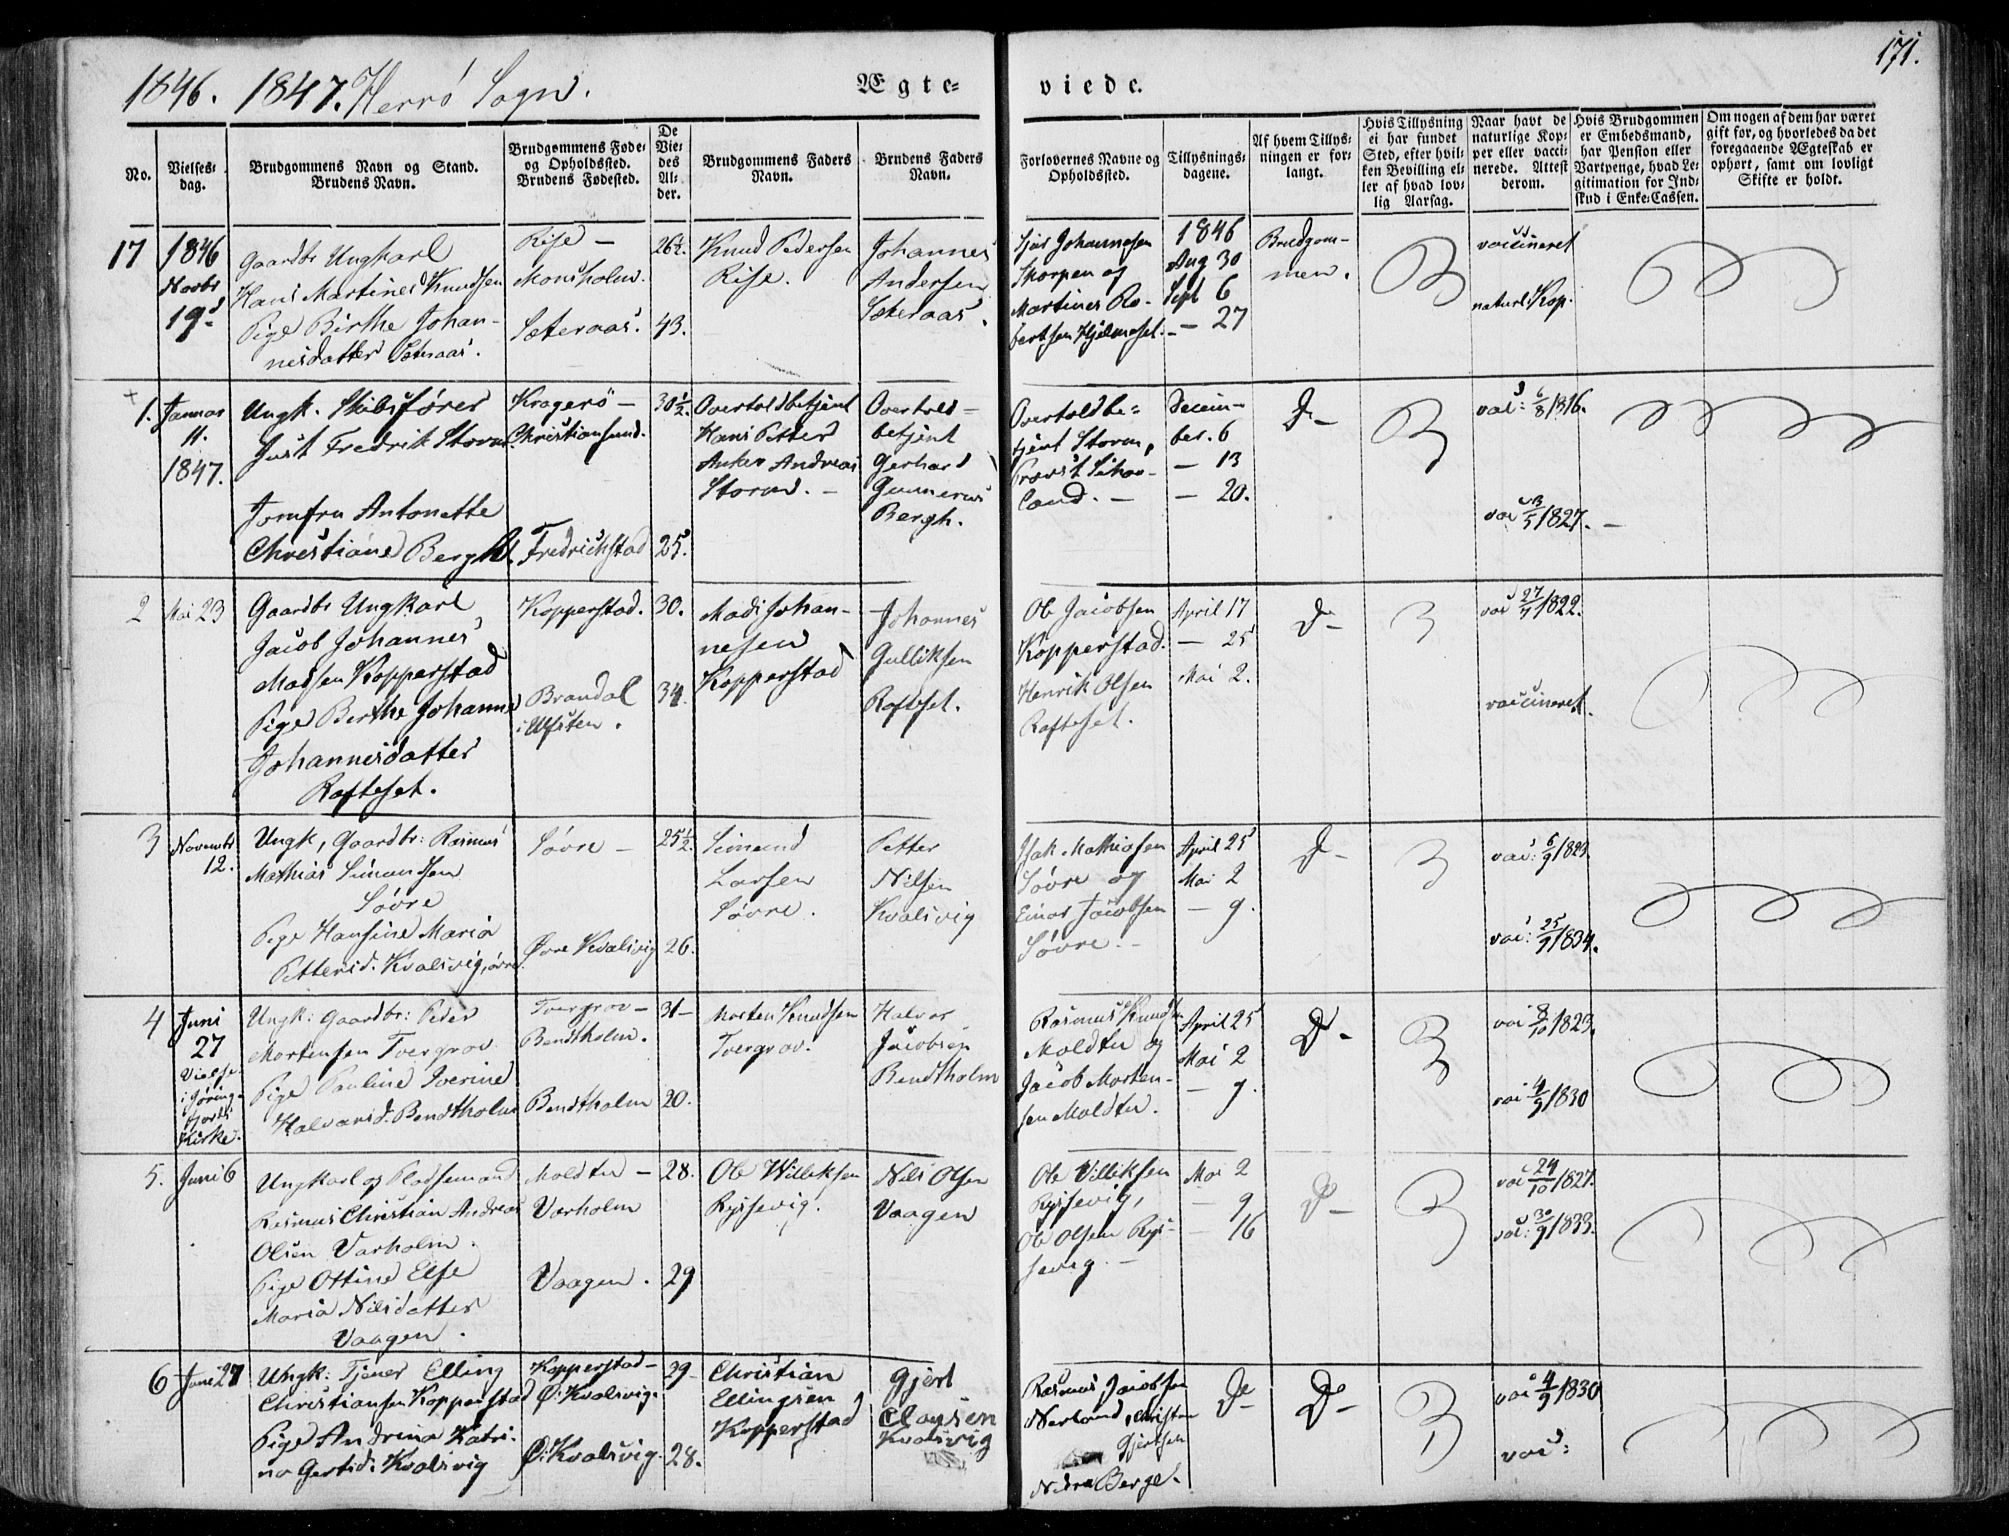 171.
1846. 1847. Herrö Sogn.
Ægte-
viede.
No.
Vielses-
dag.
Brudgommens Navn og Stand.
Brudens Navn.
Brudgommens Føde-
og Opholdssted.
Brudens Fødested.
De
Vie-
des
Al-
der.
Brudgommens Faders
Navn.
Brudens Faders
Navn.
Forlovernes Navne og
Opholdssted.
Tillysnings-
dagene.
Af hvem Tillys-
ningen er for-
langt.
Hvis Tillysning
ei har fundet
Sted, efter hvil-
ken Bevilling el-
ler af hvad lov-
lig Aarsag.
Naar havt de
naturlige Kop-
per eller vacci-
nerede. Attest
derom.
Hvis Brudgommen
er Embedsmand,
har Pension eller
Vartpenge, hvad Le-
gitimation for Ind-
skud i Enke-Cassen.
Om nogen af dem har været
gift før, og hvorledes da det
foregaaende Ægteskab er
ophørt, samt om lovligt
Skifte er holdt.
17
1846
Novbr
19.
Gaardbr Ungkarl
Hans Martines Knudsen
Pige Birthe Johan-
nesdatter Sæteraas.
Rise -
Monsholm.
Sæteraas.
26½.
43.
Knud Pedersen
Rise.
Johannes
Andersen
Sæteraas.
Johannesen
Skorpen og
Martines Ro-
bertsen Hjelmeset.
1846
Aug 30
Sept 6
- 27
Brudgom-
men.
vaccineret
naturl: Kop.
1.
Januar
11.
1847.
Ungk. Skibsfører
Just Fredrik Storm.
Jomfru Antonette
Christiane Bergh.
Kragerö -
Christiansund.
Fredrichstad
30½.
25.
Overtoldbetjent
Hans Petter
Anker Andreas
Storm. -
Overtold-
betjent
Gerhard
Gunnerus
Bergh.
Overtoldbe-
tjent Storm,
Provst
land. -
Decem-
ber. 6
- 13
- 20.
D-
vac: 6/8 1816.
vac 13/5 1827. -
2
Mai 23
Gaardbr Ungkarl
Jacob Johannes
Madsen Kopperstad
Pige Berthe Johanne
Johannesdatter
Rafteset.
Kopperstad.
Brandal
i Ulfsten.
30.
34.
Mads Johan-
nesen
Kopperstad
Johannes
Gulliksen
Rafteset.
Ole Jacobsen
Kopperstad.
Henrik Olsen
Rafteset.
April 17
- 25
Mai 2.
D-
vac 27/7 1822.
vaccineret.
3
Novembr
12.
Ungk, Gaardbr: Rasmus
Mathias Simonsen
Søvre
Pige Hansine Maria
Pettersd. Kvalsvig, øvre
Søvre -
Øvre Kvalsvig
25½.
26.
Simund
Larsen
Søvre.
Petter
Nilsen
Kvalsvig
Isak Mathiasen
Søvre og
Einar Jacobsen
Søvre. -
April 25
Mai 2
- 9.
D-
vac: 6/9 1823.
vac: 25/9 1834.
4
Juni
27
Vielse
i Jöring-
fjords
Kirke.
Ungk: Gaardbr: Peder
Mortensen Tvergrov
Pige Pauline Iverine
Halvarsd. Bendtholm
Tvergrov -
Bendtholm.
Bendtholm
31-
20.
Morten Knudsen
Tvergrov.
Halvor
Jacobsen
Bendtholm
Rasmus Knudsen
Moldtu og
Jacob Morten-
sen Moldtu.
April 25
Mai 2
- 9.
D-
vac 8/10 1823.
vac 4/9 1830
5.
Juni 6
Ungkarl og Pladsemand
Rasmus Christian Andreas
Olsen Varholm.
Pige Ottine Else
Maria Nilsdatter
Vaagen.
Moldtu -
Varholm
Vaagen.
28.
29
Ole Villiksen
Ryssevig.
Nils Olsen
Vaagen
Ole Villiksen
Ryssevig,
Ole Olsen Rys-
sevig. -
Mai 2
- 9
- 16
D-
vac 24/10 1827.
vac: 30/9 1833.
6
Juni 27
Ungk: Tjener Elling
Christiansen Kopperstad
Pige Andrina Katri-
na Gertsd. Kvalsvig
Kopperstad -
Ø: Kvalsvig.
Ø: Kvalsvig.
39-
28.
Christian
Ellingsen
Kopperstad
Gjert
Clausen
Kvalsvig
Rasmus Jacobsen
Nerland, Christen
Gjertsen
Nedre Berge.
D-
D-
vac 4/9 1830
vac: